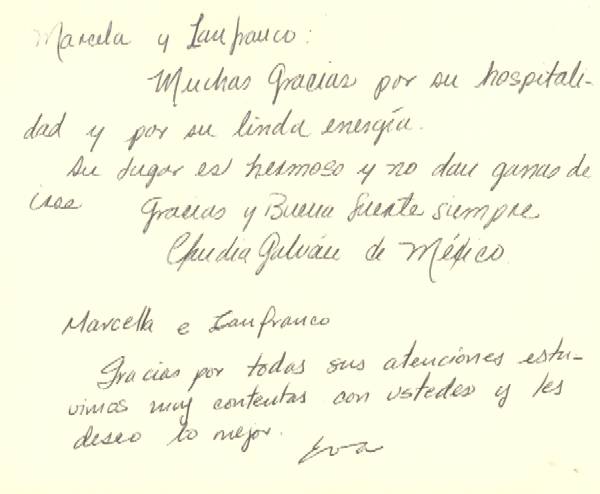 Marcela y Lanfranco:
Muchas Gracias por su hospitali-
dad y por su linda energía.
Su lugar es hermoso y no dan ganas de
irse Gracias y Buena Suerte siempre
Claudia Galván de México
Marcella e Lanfranco
Gracias por todas sus atenciones estu-
vimos muy contentas con ustedes y les
deseo lo mejor.
Eva